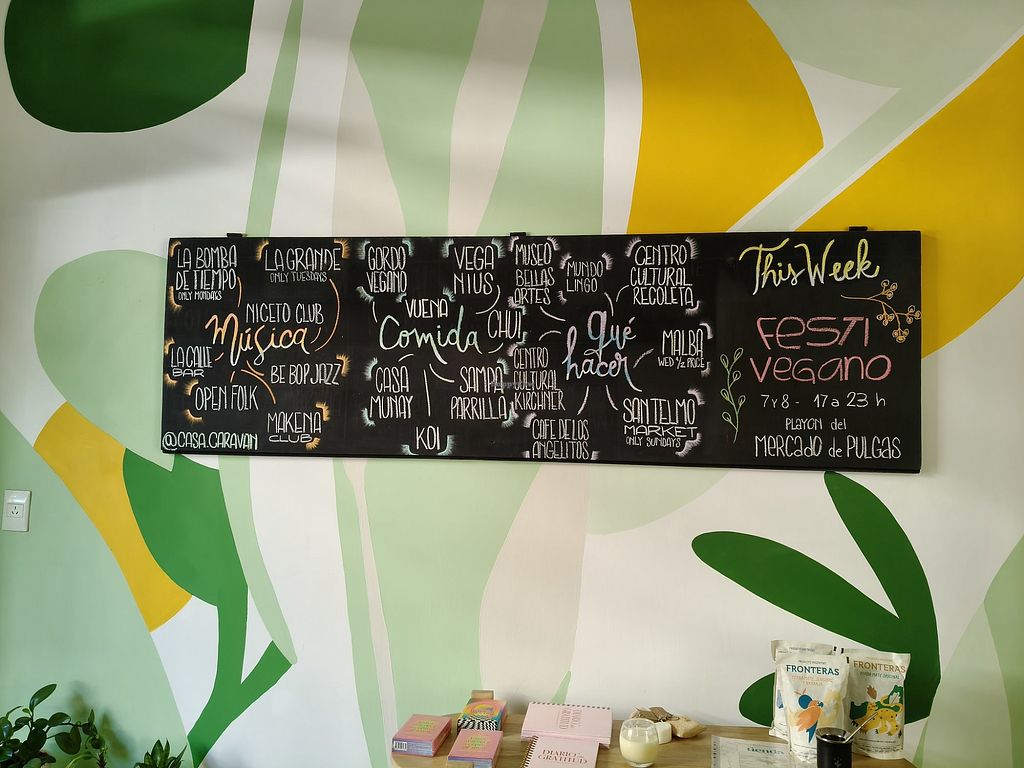 LA BOMBA
DE TIEMPO
ONLY MONDAYS
LA GRANDE
ONLY TUESDAYS
NICETO CLUB
Música
LA CALLE
BAR
BE BOP JAZZ
OPEN FOLK
MAKENA
CLUB
@CASA.CARAVAN
GORDO
VEGANO
VEGA
NIUS
VUENA
Comida
CHUI
CASA
MUNAY
SAMPA
PARRILLA
KOI
MUSEO
BELLAS
ARTES
MUNDO
LINGO
CENTRO
CULTURAL
RECOLETA
qué
hacer
MALBA
WED ½ PRICE
CENTRO
CULTURAL
KIRCHNER
CAFE DE LOS
ANGELITOS
SAN TELMO
MARKET
ONLY SUNDAYS
This Week
FESTI
VEGANO
7 y 8 - 17 a 23 h
PLAYON del
MERCADO de PULGAS
FRONTERAS
FRONTERAS
YERBA MATE ORIGINAL
DIARIO de
GRATITUD
tienda